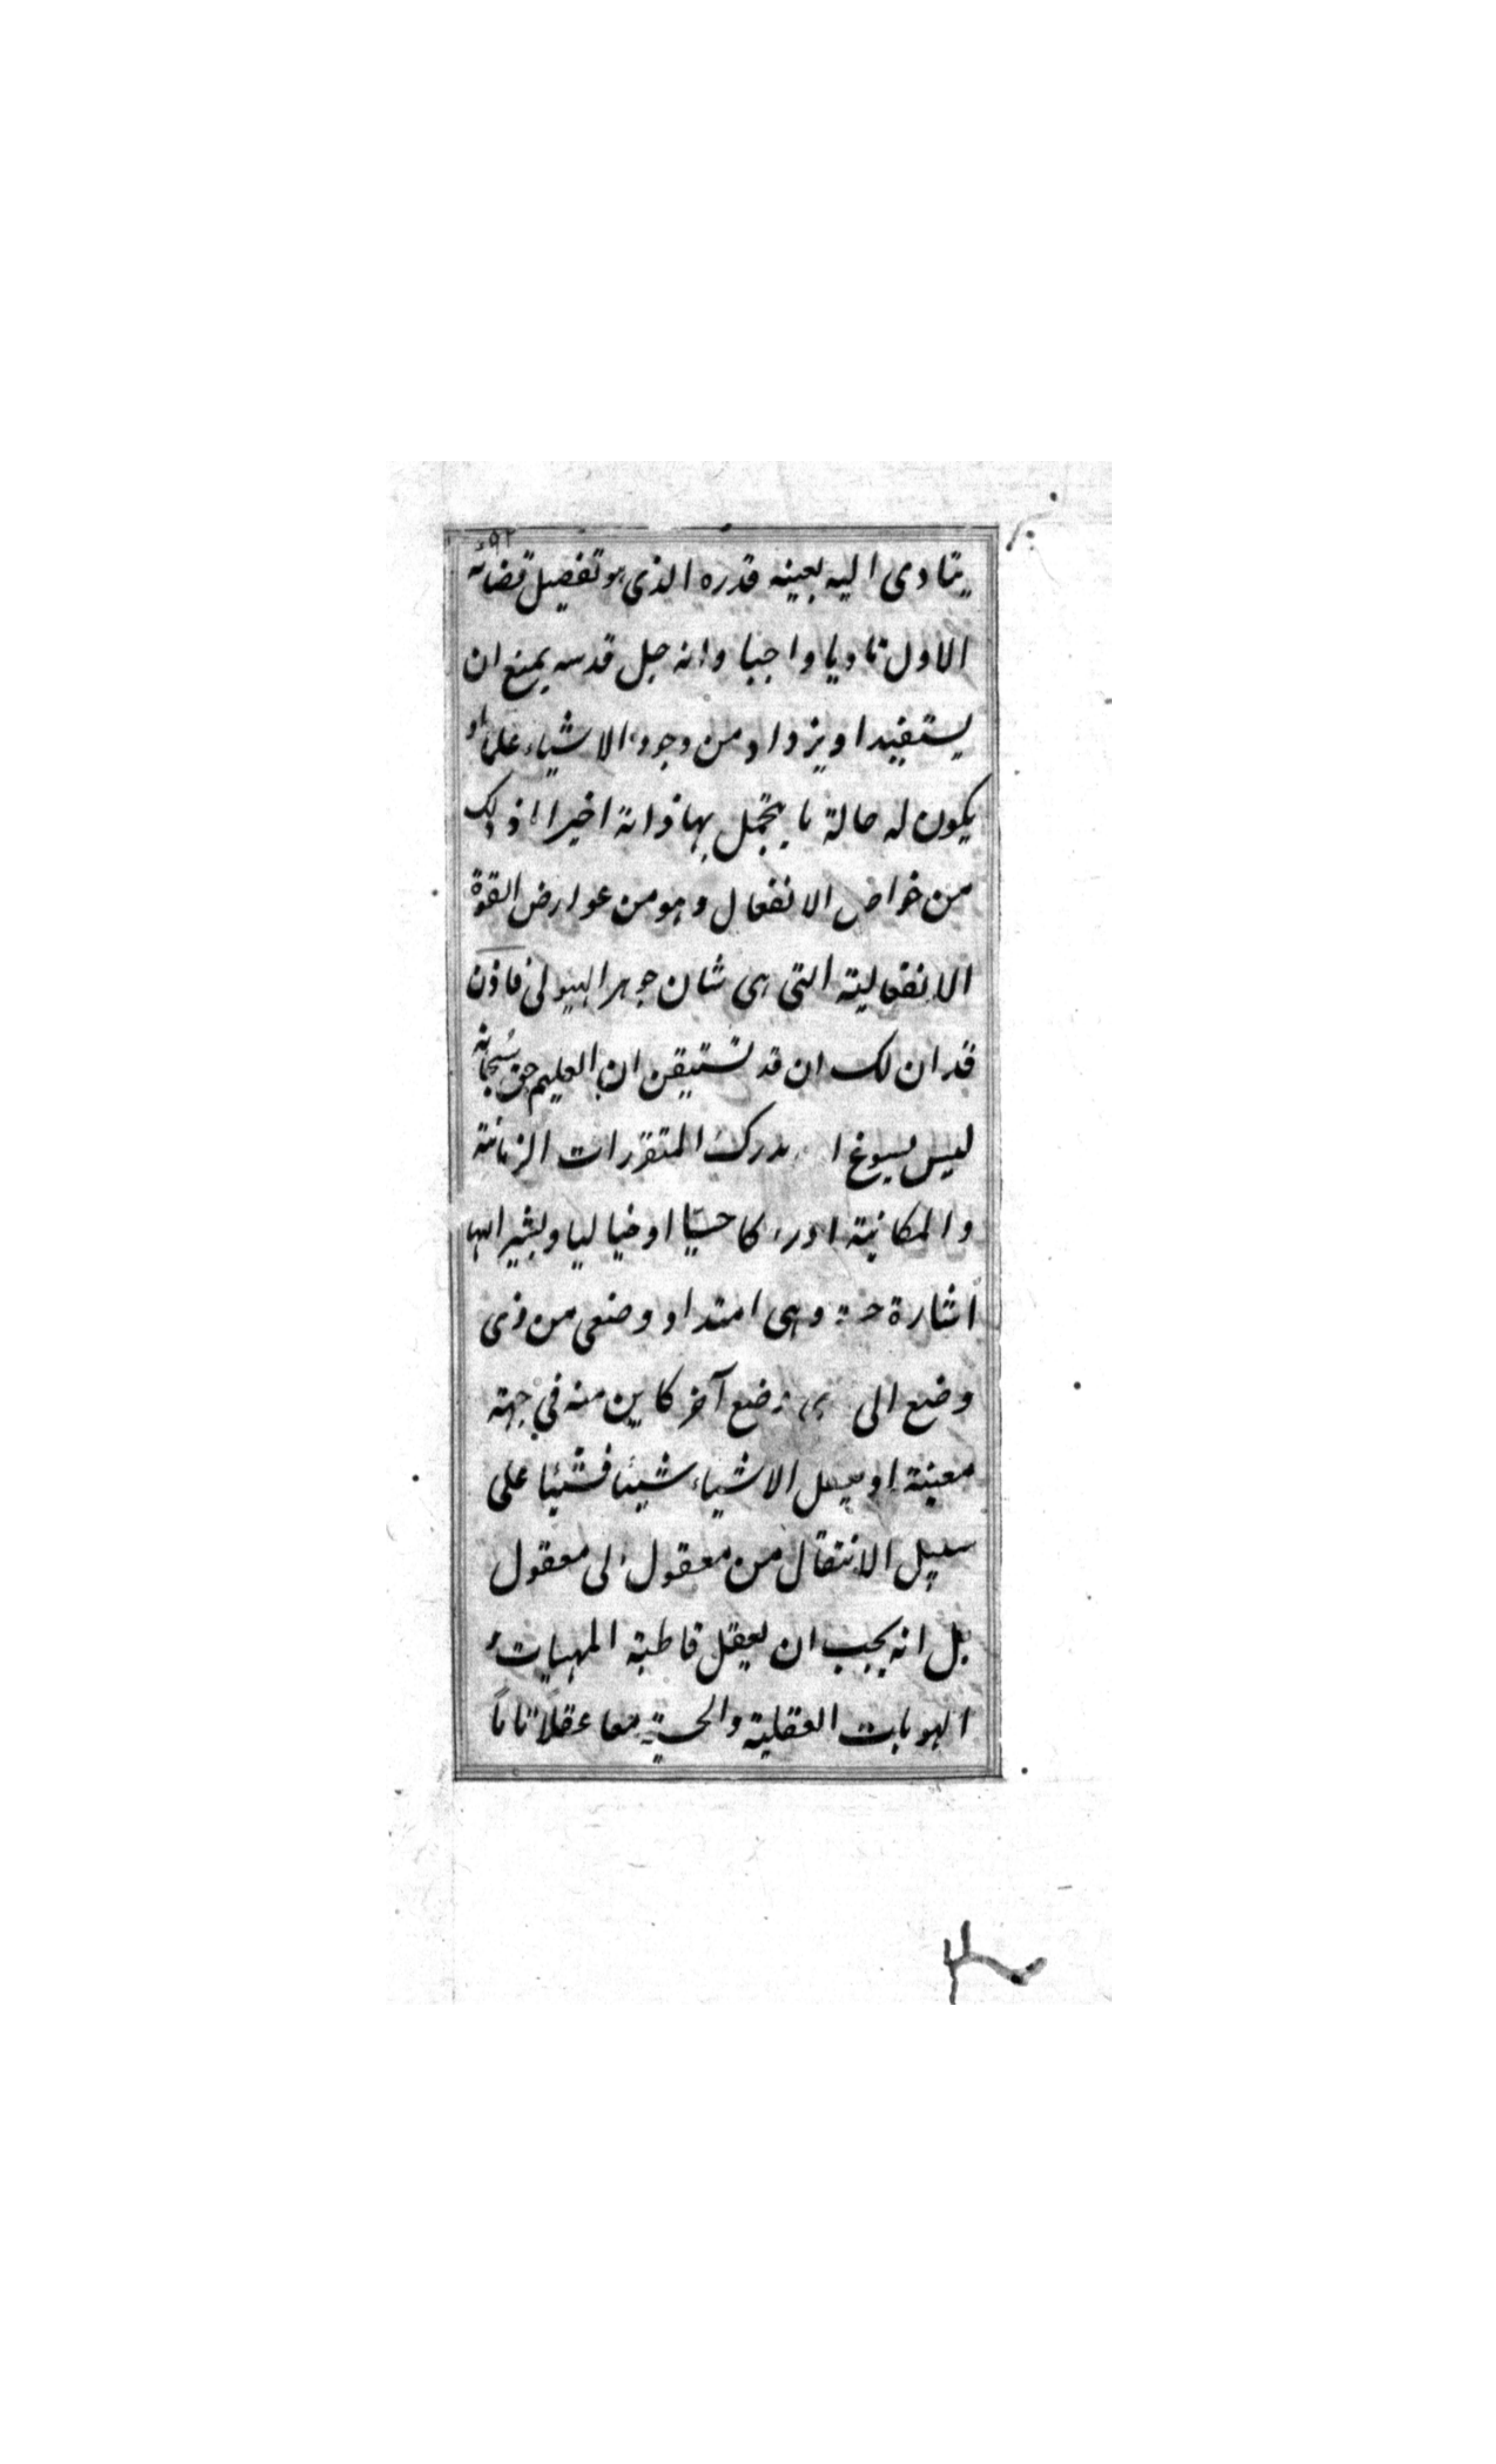 يتادى اليه بعينه قدره الذى هو تفصيل قضائه
الاول تاديا واجبا وانه جل قدسه يمتنع ان
يستفيد او يزداد من وجود الاشياء علما او
يكون له حالة ما يتجمل بها ذاته اخيرا اذ ذلك
من خواص الانفعال وهو من عوارض القوة
الانفعالية التى هى شان جوهر الهيولى فاذن
قد ان لك ان قد تستيقن ان العليم حق سبحانه
ليس يسوغ يدرك المتقررات الزمانية
والمكانية ادراكا حسيا او خياليا ويشير اليها
اشارة وهى امتداد وضعى من ذى
وضع الى وضع آخر كاين منه فى جهة
معينة او الاشياء شيئا فشيئا على
سبيل الانتقال من معقول الى معقول
بل انه يجب ان يعقل قاطبة المهيات و
الهويات العقلية والحسية معا عقلا تاما